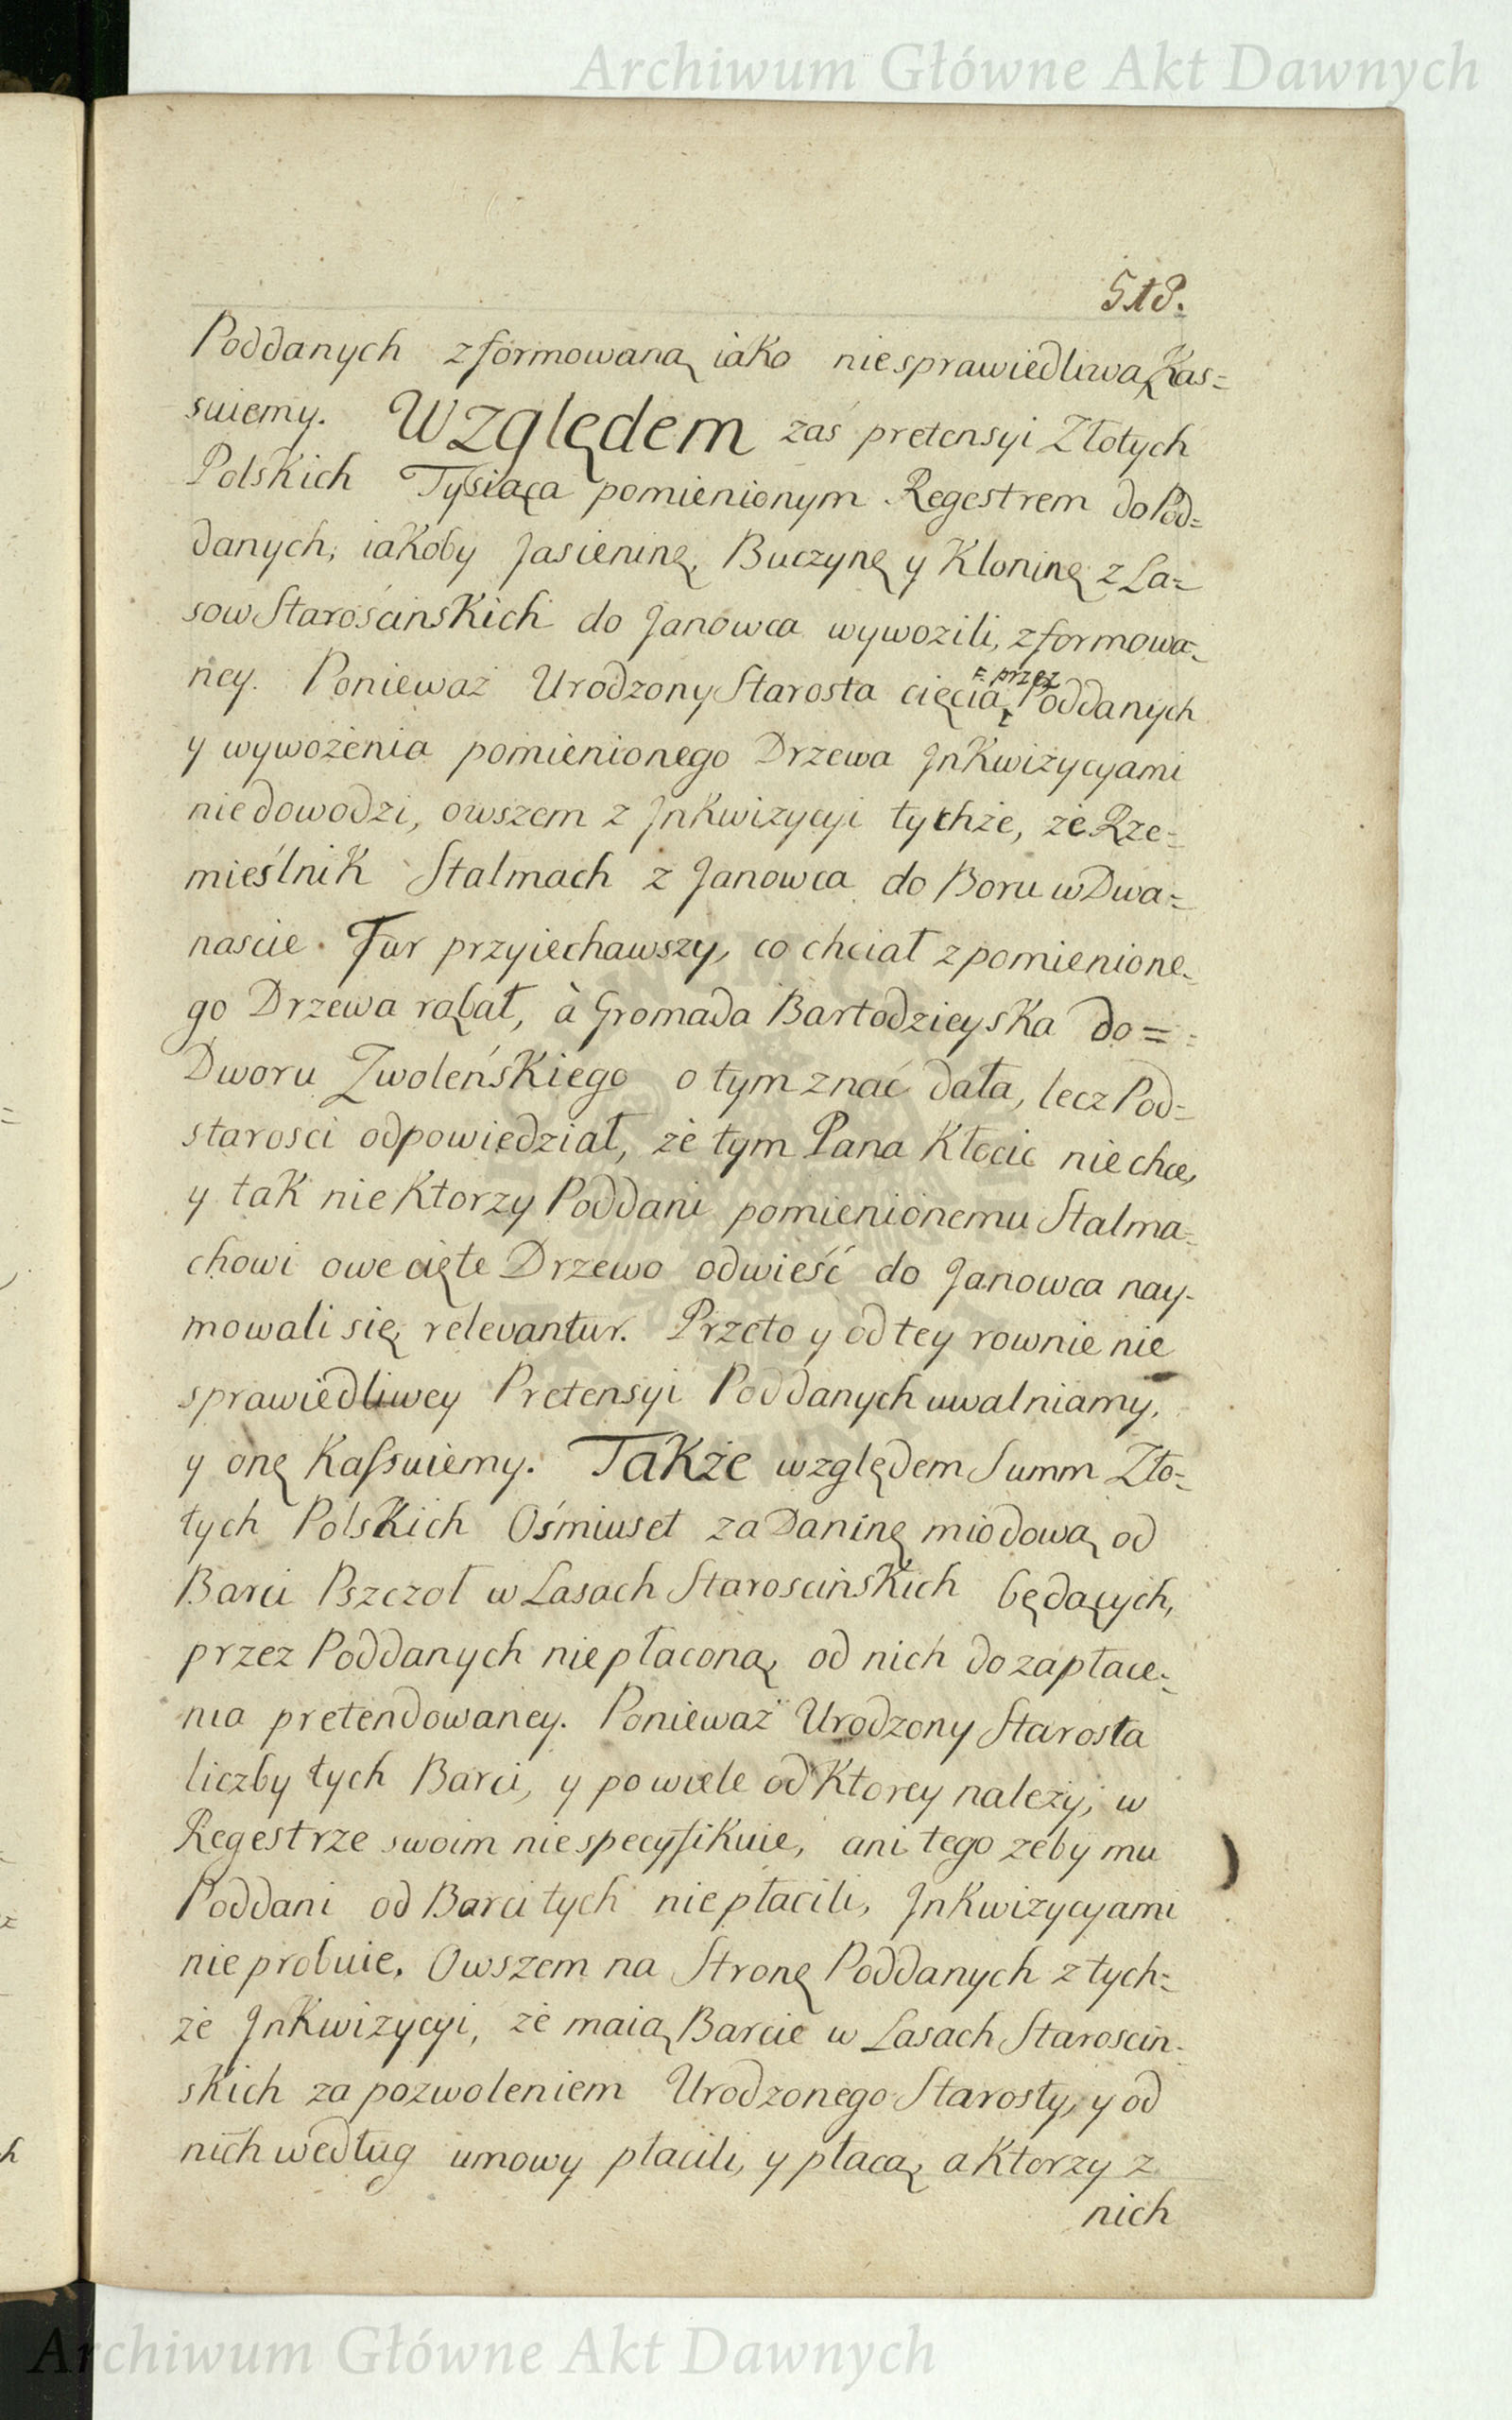 Archiwum Główne Akt Dawnych
518.
Poddanych zformowaną iako niesprawiedliwą Kas=
suiemy. Względem zaś pretensyi Złotych
Polskich Tysiąca pomienionym Regestrem do Pod=
danych, iakoby Jasieninę, Buczynę y Kloninę z La=
sow Starościnskich do Janowca wywozili, zformowa=
ney. Ponieważ Urodzony Starosta cięcia Poddanych
F. przez
y wywożenia pomienionego Drzewa Jnkwizycyami
nie dowodzi, owszem z Jnkwizycyi tychże, że Rze=
mieślnik Stalmach z Janowca do Boru w Dwa=
nascie Fur przyiechawszy, co chciał z pomienione=
go Drzewa rąbał, à Gromada Bartodzieyska do=
Dworu Zwoleńskiego o tym znać dała, lecz Pod=
starosci odpowiedział, że tym Pana Kłocic nie chce,
y tak nie Ktorzy Poddani pomienionemu Stalma=
chowi owe cięte Drzewo odwieść do Janowca nay=
mowali się, relevantur. Przeto y od tey rownie nie
sprawiedliwey Pretensyi Poddanych uwalniamy,
y onę Kassuiemy. Także względem Summ Zło=
tych Polskich Ośmiuset za Daninę miodową od
Barci Pszczoł w Lasach Staroscińskich będących,
przez Poddanych nie płaconą, od nich do zapłace=
nia pretendowaney. Ponieważ Urodzony Starosta
liczby tych Barci, y po wiele od Ktorey należy, w
Regestrze swoim nie specyfikuie, ani tego zeby mu
Poddani od Barci tych nie płacili, Jnkwizycyami
nie probuie, Owszem na Stronę Poddanych z tych=
że Jnkwizycyi, że maią Barcie w Lasach Staroscin=
skich za pozwoleniem Urodzonego Starosty, y od
nich według umowy płacili, y płacą, a Ktorzy z
nich
Archiwum Główne Akt Dawnych